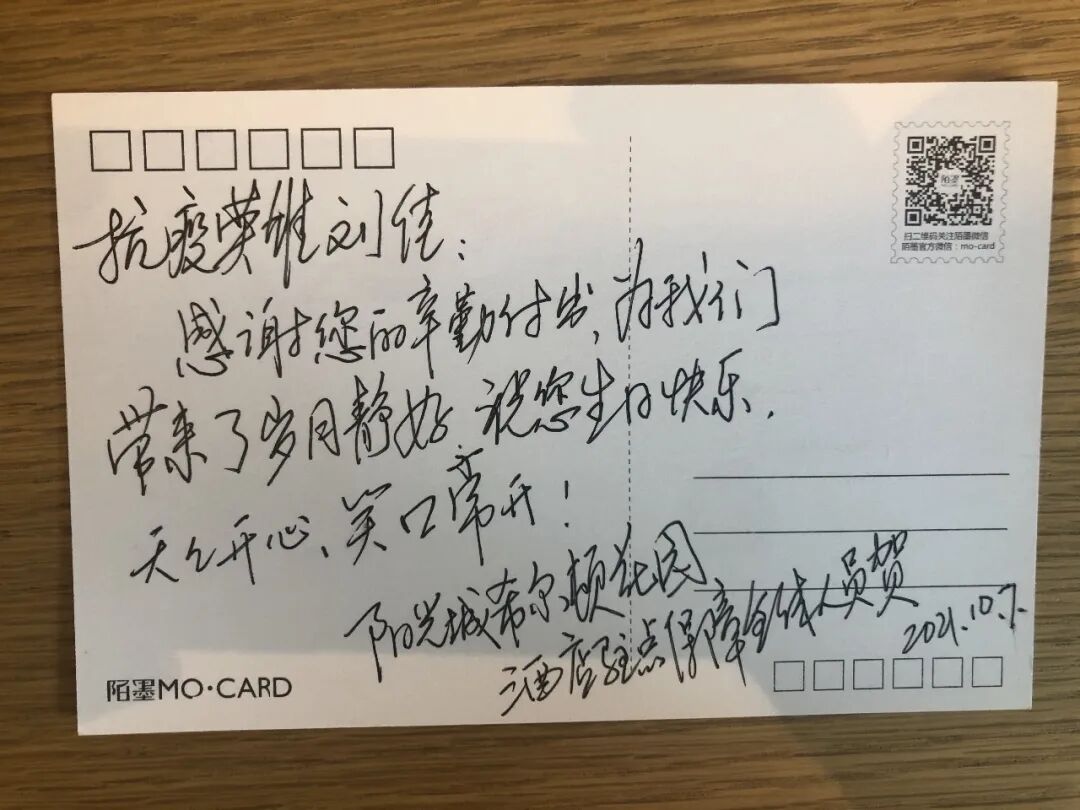 扫二维码关注陌墨微信
陌墨官方微信：mo-card
抗疫英雄刘佳：
感谢您的辛勤付出，为我们
带来了岁月静好，祝您生日快乐，
天天开心、笑口常开！
阳光城希尔顿花园
酒店驻点保障全体人员贺
2021.10.7.
陌墨MO·CARD